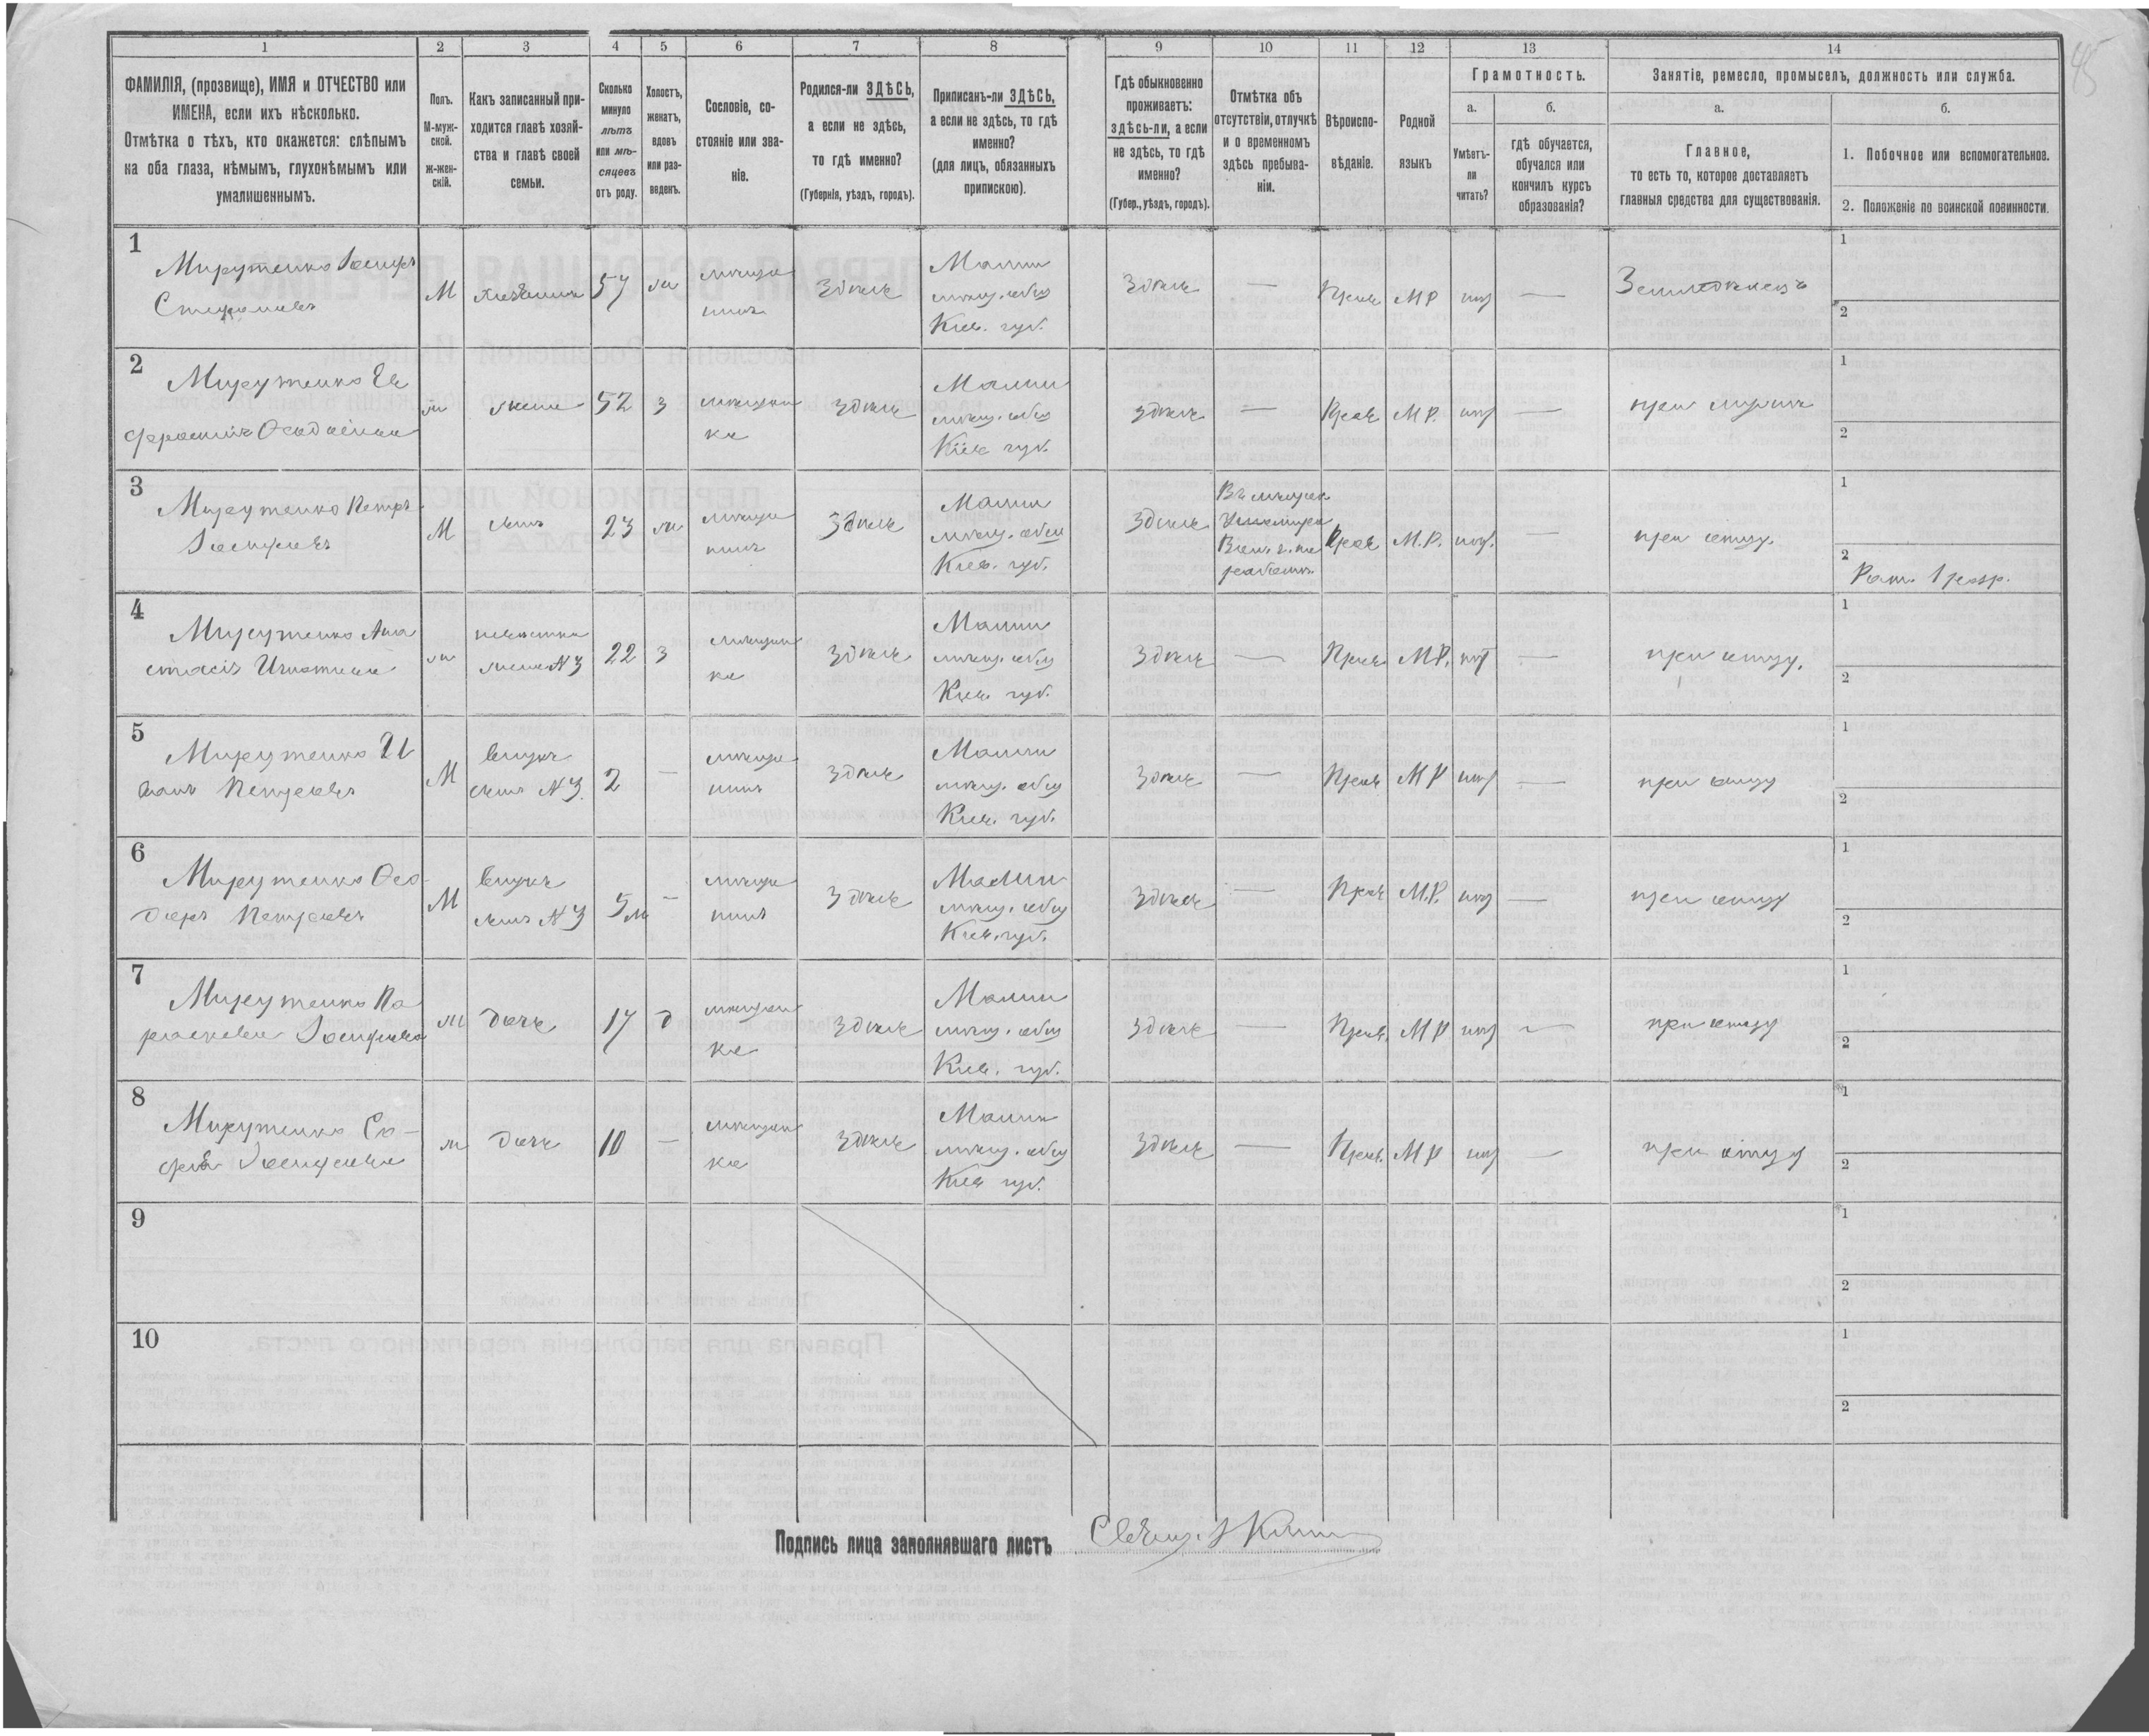 45
1 2 3 4 5 6 7 8 9 10 11 12 13 14
ФАМИЛІЯ, (прозвище), ИМЯ и ОТЧЕСТВО или
ИМЕНА, если ихъ нѣсколько.
Отмѣтка о тѣхъ, кто окажется: слѣпымъ
на оба глаза, нѣмымъ, глухонѣмымъ или
умалишеннымъ.
Полъ.
М-муж-
ской.
ж-жен-
скій.
Какъ записанный при-
ходится главѣ хозяй-
ства и главѣ своей
семьи.
Сколько
минуло
лѣтъ
или мѣ-
сяцевъ
отъ роду.
Холостъ,
женатъ,
вдовъ
или раз-
веденъ.
Сословіе, со-
стояніе или зва-
ніе.
Родился-ли ЗДѢСЬ,
а если не здѣсь,
то гдѣ именно?
(Губернія, уѣздъ, городъ).
Приписанъ-ли ЗДѢСЬ,
а если не здѣсь, то гдѣ
именно?
(для лицъ, обязанныхъ
припискою).
Гдѣ обыкновенно
проживаетъ:
здѣсь-ли, а если
не здѣсь, то гдѣ
именно?
(Губер., уѣздъ, городъ).
Отмѣтка объ
отсутствіи, отлучкѣ
и о временномъ
здѣсь пребыва-
ніи.
Вѣроиспо-
вѣданіе.
Родной
языкъ
Грамотность.
а.
Умѣетъ-
ли
читать?
б.
гдѣ обучается,
обучался или
кончилъ курсъ
образованія?
Занятіе, ремесло, промыселъ, должность или служба.
а.
Главное,
то есть то, которое доставляетъ
главныя средства для существованія.
б.
1. Побочное или вспомогательное.
2. Положеніе по воинской повинности.
1
Мирутенко Іосифъ
Стефановъ
М
хозяинъ
57
ж
мѣща
нинъ
здѣсь
Малин
мѣщ. общ
Кіев. губ.
здѣсь
—
Прав
МР
нѣт
—
Земледѣлецъ
1
2
2
Мирутенко Ев
фросинія
ж
жена
52
з
мѣщан
ка
здѣсь
Малин
мѣщ. общ
Кіев губ.
здѣсь
—
Прав
М Р.
нѣт
—
при мужѣ
1
2
3
Мирутенко Петръ
Іосифовъ
М
сынъ
23
ж
мѣща
нинъ
здѣсь
Малин
мѣщ. общ
Кіев. губ.
здѣсь
Прав
М.Р.
нѣт.
—
при отцу.
1
2
Рат. 1 разр.
4
Мирутенко Ана
стасія Игнатова
ж
невѣстка
жена N 3
22
з
мѣщан
ка
здѣсь
Малин
мѣщ. общ
Кіев. губ.
здѣсь
—
Прав.
М Р.
нѣт
—
при отцу.
1
2
5
Мирутенко И
ванъ Петровъ
М
внукъ
сынъ N 3.
2
—
мѣща
нинъ
здѣсь
Малин
мѣщ. общ
Кіев. губ.
здѣсь
—
Прав
М Р
нѣт
—
при отцу
1
2
6
Мирутенко Ѳео-
доръ Петровъ
М
внукъ
сынъ N 3
5 м
—
мѣща
нинъ
здѣсь
Малин
мѣщ. общ
Кіев. губ.
здѣсь
—
Прав
М.Р.
нѣт
—
при отцу
1
2
7
Мирутенко Па
раскева Іосифова
ж
дочь
17
д
мѣщан
ка
здѣсь
Малин
мѣщ. общ
Кіев. губ.
здѣсь
—
Прав.
М Р
нѣт
—
при отцу
1
2
8
Мирутенко Со-
фія Іосифова
ж
дочь
10
—
мѣщан
ка
здѣсь
Малин
мѣщ. общ
Кіев губ.
здѣсь
—
Прав.
М Р
нѣт
—
при отцу
1
2
9
1
2
10
1
2
Подпись лица заполнявшаго листъ